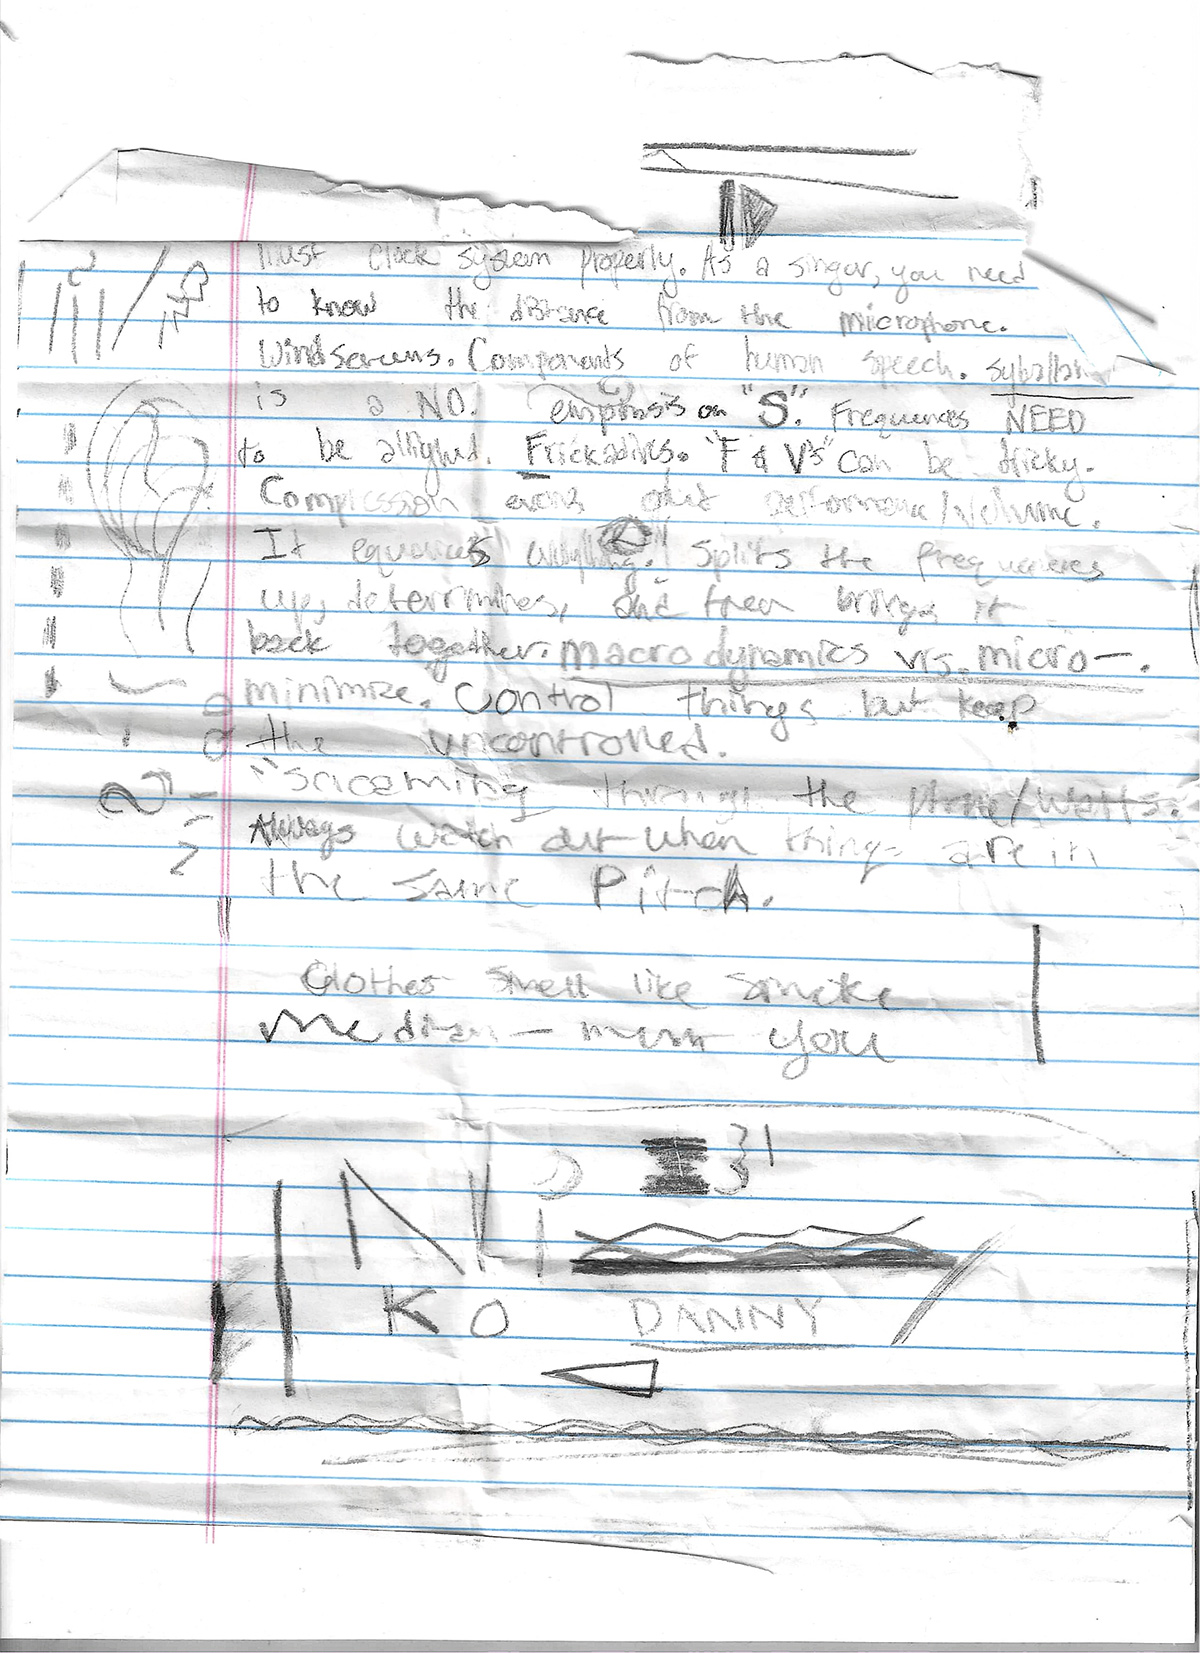 Must Clock system properly. As a singar, you need
to know the distance from the miicrophone.
Windscreens. Components of human speech.
is a NO. emphasis on "S". Frequences NEED
to be alligned. Frickadives. "F & V's" can be tricky.
Compression evens out performance/Volume.
It equences everything. Splits the frequencies
up, determines, and then brings it
back together. macrodynamics vrs. micro—.
minimize. Control things but keep
the uncontrolled.
"Screaming through the phone/watts.
Always watch out when things are in
the same Pitch.
Clothes smell like smoke
you
KO DANNY